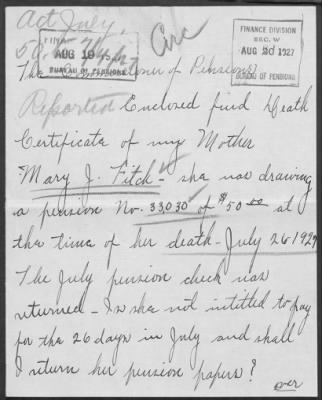 Act July,
Circ
FINANCE DIVISION
SEC. W
AUG 30 1927
BUREAU OF PENSIONS
AUG 19
BUREAU OF PENSIONS
The Commissioner of Pensions
Reported Enclosed find death
Certificate of my Mother
Mary J. Fitch - she was drawing
a pension No. 33,030 of $50.00 at
the time of her death - July 26 - 1927
The July pension check was
returned - Is she not intitled to pay
for the 26 days in July and shall
I return her pension papers?
over